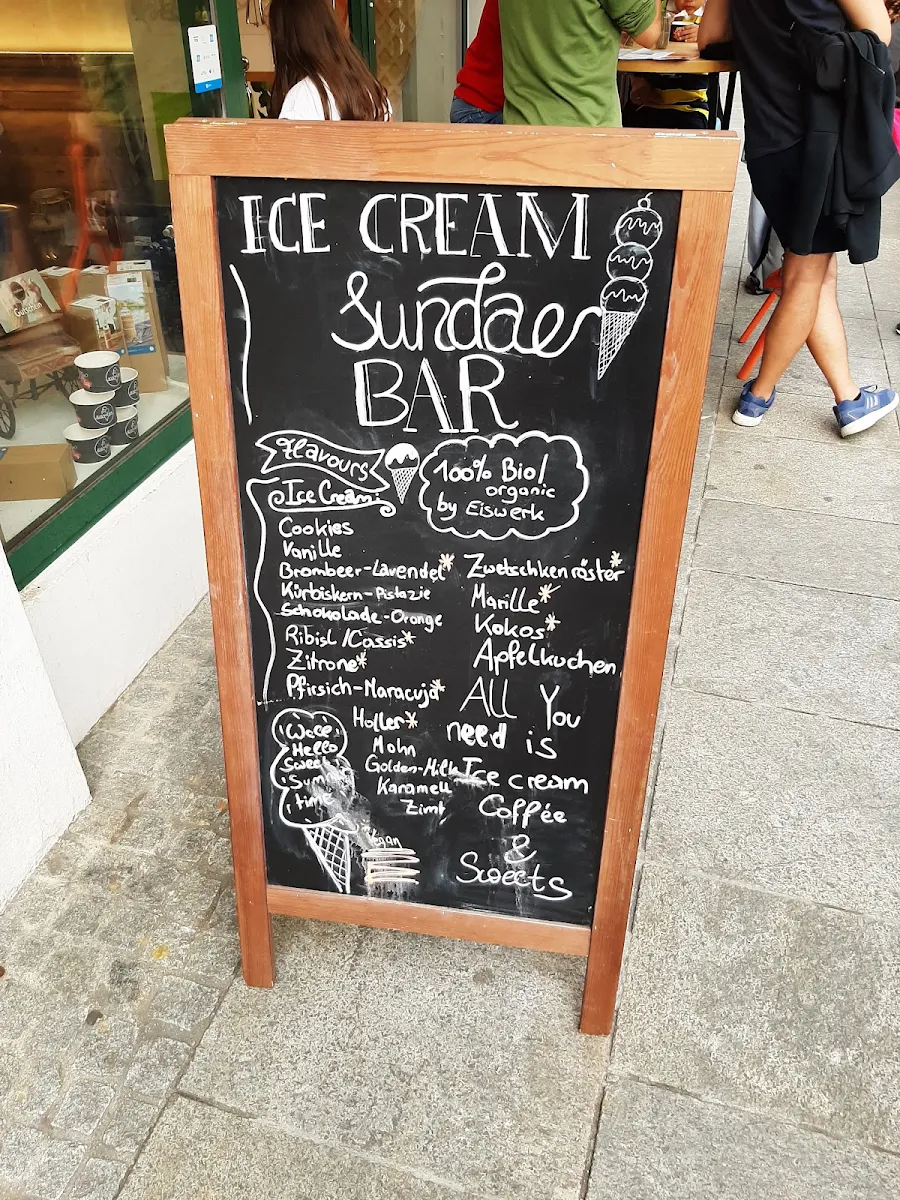 ICE CREAM
Sundaes
BAR
Flavours
Ice Cream:
100% Bio/
organic
by Eiswerk
Cookies
Vanille
Brombeer-Lavendel*
Kürbiskern-Pistazie
Schokolade-Orange
Ribisl/Cassis*
Zitrone*
Pfirsich-Maracuja*
Holler*
Mohn
Golden-Milk
Karamell
Zimt
Zwetschkenröster*
Marille*
Kokos*
Apfelkuchen
Well,
Hello
Sweet
Summer
time
Vegan
All You
need is
Ice cream
Coffee
&
Sweets